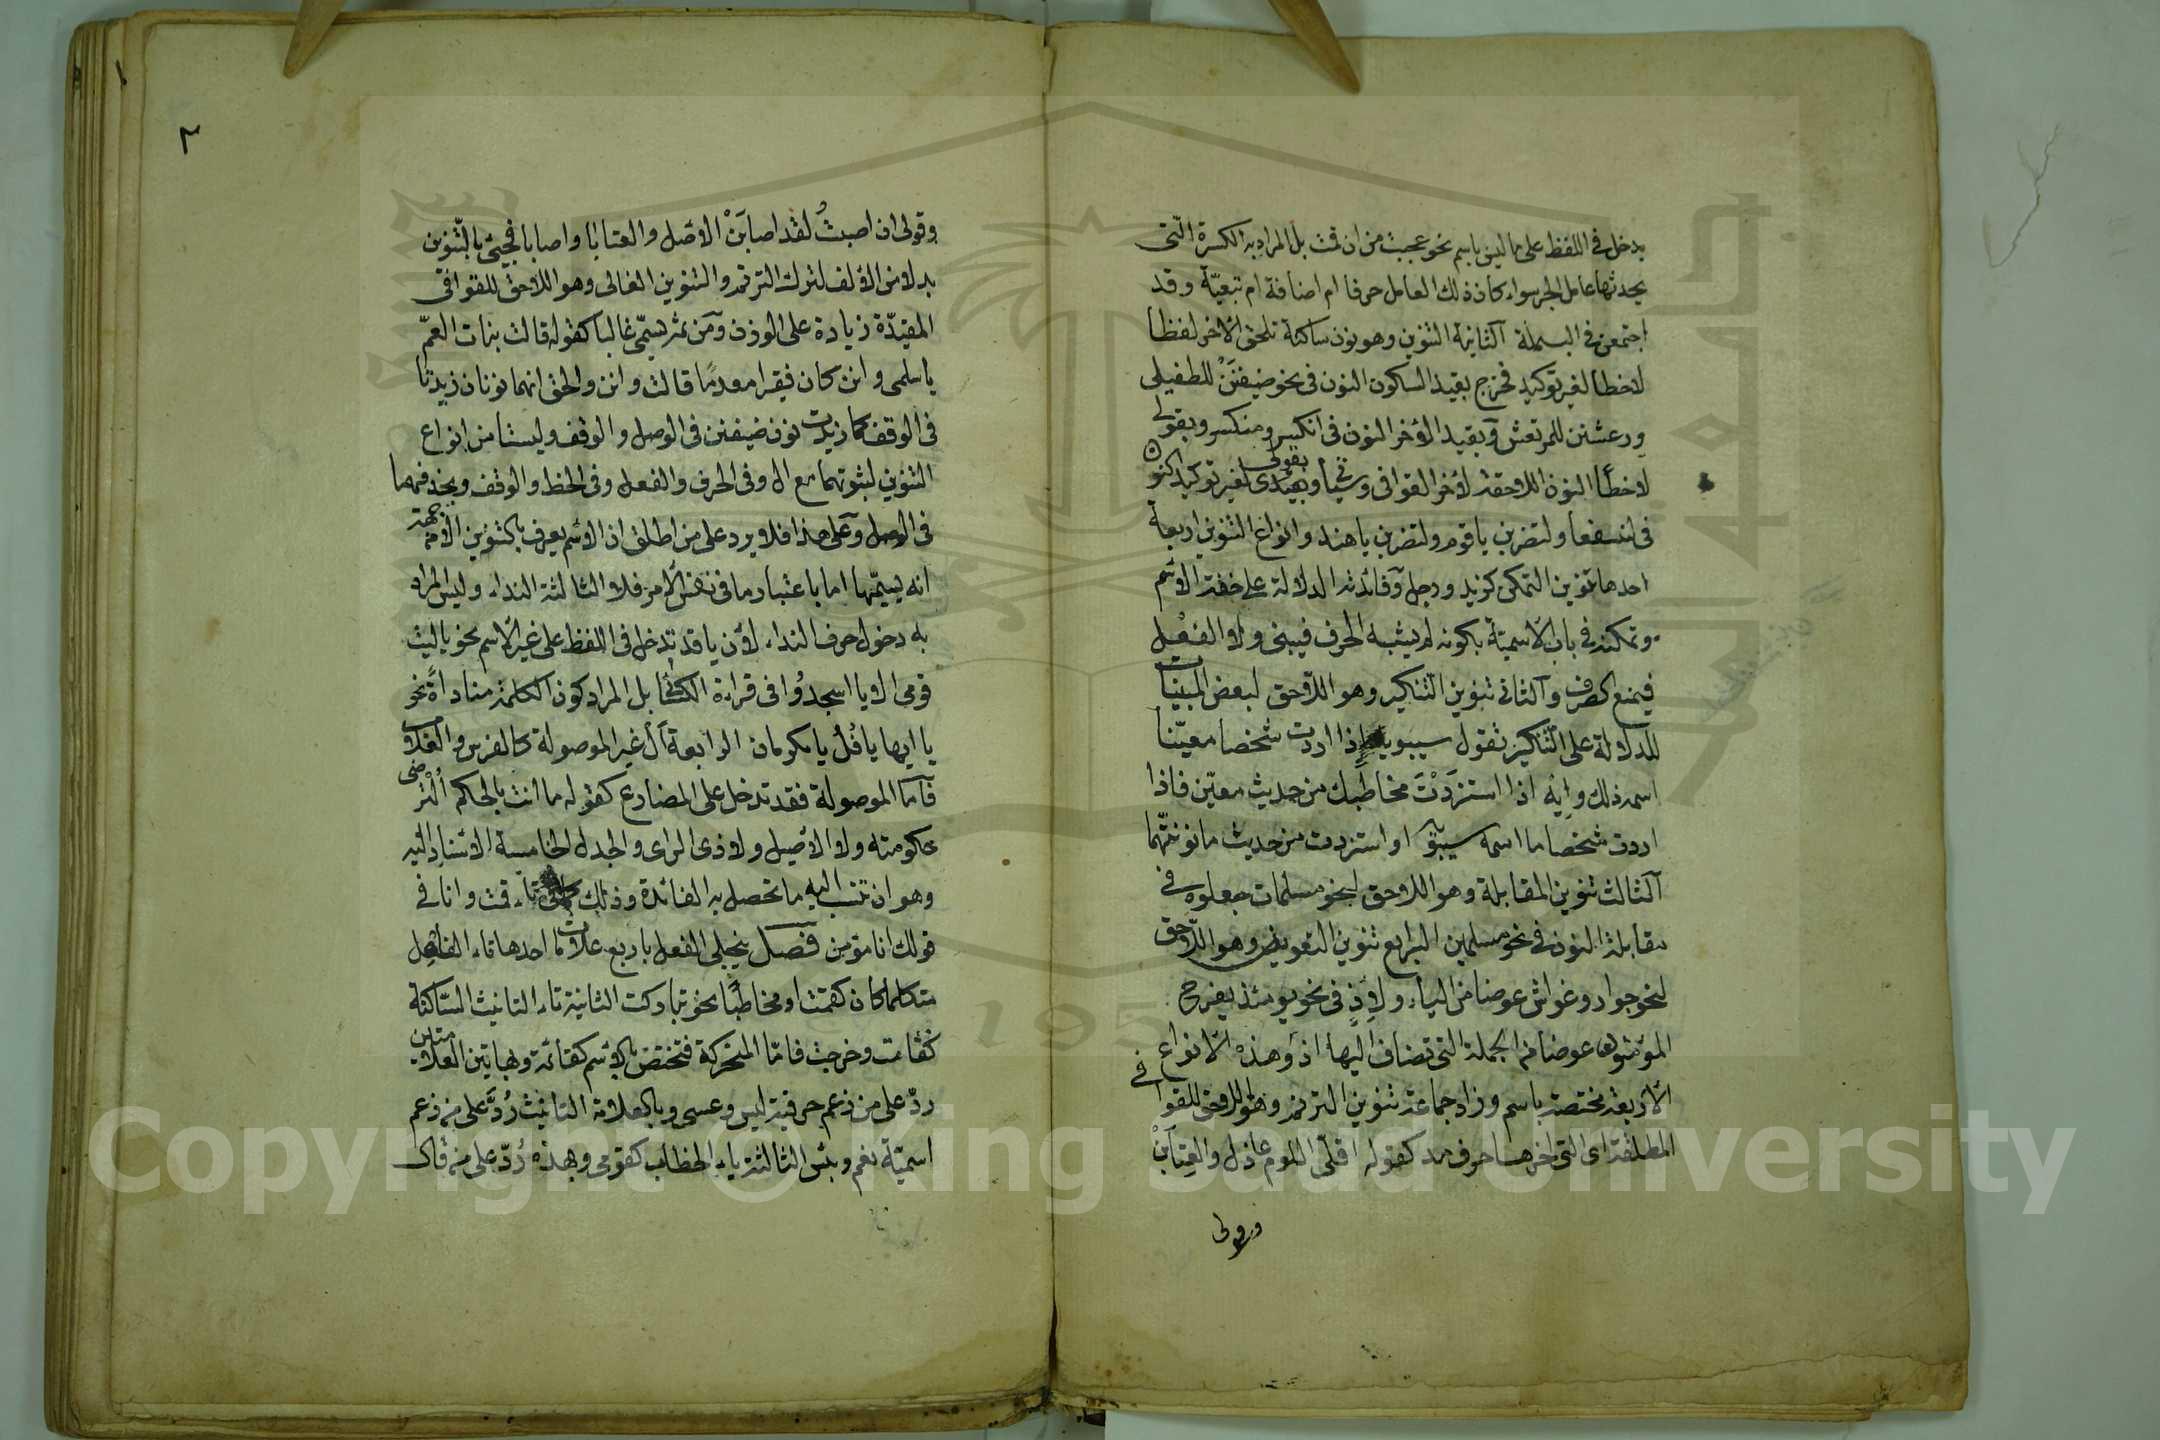 يدخل في اللفظ على ما ليس باسم نحو عجبت من ان قمت بل المراد به الكسرة التي
يحدثها عامل الجر سواء كان ذلك العامل حرفا ام اضافة ام تبعيّة وقد
اجتمعن في البسملة الثانية التنوين وهو نون ساكنة تلحق الاخر لفظا
لا خطا لغير توكيد فخرج بقيد السكون النون في نحو ضيفنٌ للطفيلي
ورعشن للمرتعش وبقيد الآخر النون في انكسر ومنكسر وبقولي
لا خطّا النون اللاحقة لآخر القوافي وستجيء وبقولي لغير توكيد النون
في لنسفعا ولتضربن يا قوم ولتضربن يا هند وانواع التنوين اربعة
احدها تنوين التمكن كزيد ورجل وفائدته الدلالة على خفة الاسم
وتمكنه في باب الاسمية بكونه لم يشبه الحرف فيبنى ولا الفعل
فيمنع الصرف والثاني تنوين التنكير وهو اللاحق لبعض المبنيات
للدلالة على التنكير تقول سيبويه اذا اردت شخصا معيّنا
اسمه ذلك وايه اذا استزدْتَ مخاطبك من حديث معيّن فاذا
اردت شخصا ما اسمه سيبويه او استزدت من حديث ما نونتهما
الثالث تنوين المقابلة وهو اللاحق لنحو مسلمات جعلوه في
مقابلة النون في نحو مسلمين الرابع تنوين التعويض وهو اللاحق
لنحو جوار وغواش عوضا من الياء ولاذٍ في نحو يومئذ يفرح
المؤمنون عوضا من الجملة التي تضاف اليها اذ وهذه الانواع
الأربعة مختصة باسم وزاد جماعة تنوين الترنم وهو اللاحق للقوافي
المطلقة اي التي اخرها حرف مد كقوله اقلّى اللوم عاذل والعتابَنْ
وقولي
٢
وقولى ان اصبتُ لقد اصابَنْ الاصل والعتابا واصابا فجيء بالتنوين
بدلا من الألف لترك الترنم والتنوين الغالى وهو اللاحق للقوافي
المقيّدة زيادة على الوزن ومن ثم سمّى غاليا كقوله قالت بنات العمّ
يا سلمى وانن كان فقيرا معدمًا قالت وانن والحق انهما نونان زيدتا
في الوقف كما زيدت نون ضيفن في الوصل والوقف وليستا من انواع
التنوين لثبوتهما مع ال وفي الحرف والفعل وفي الخط والوقف وبحذفهما
في الوصل وعلى هذا فلا يرد على من اطلق ان الاسم يعرف بالتنوين الا من جهة
انه يسمّيها اما باعتبار ما في نفس الأمر فلا الثالثة النداء وليس المراد
به دخول حرف النداء لأن يا قد تدخل في اللفظ على غير الاسم نحو يا ليت
قومي الا يا اسجدُوا في قراءة الكسائي بل المراد كون الكلمة مناداةً نحو
يا ايها يا فُلُ يا مكرمان الرابعة أل غير الموصولة كالفرس والغلام
فأما الموصولة فقد تدخل على المضارع كقوله ما انت بالحكم التُرضى
حكومته ولا الأصيل ولا ذى الراى والجدل الخامسة الاسناد اليه
وهو ان تنسب اليه ما تحصل به الفائدة وذلك كما في تاء قمت وانا في
قولك انا مؤمن فصل ينجلى الفعل باربع علامات احدها تاء الفاعل
متكلما كان كقمت او مخاطبًا نحو تباركت الثانية تاء التانيث الساكنة
كقامت وخرجت فامّا المتحركة فتختص بالاسم كقائمة وبهاتين العلامتين
ردّ على من زعم حرفية ليس وعسى وبالعلامة التانيث رُدّ على من زعم
اسمية نعم وبئس الثالثة ياء الخطاب كقومى وبهذه رُدّ على من قال
Copyright © King Saud University
195